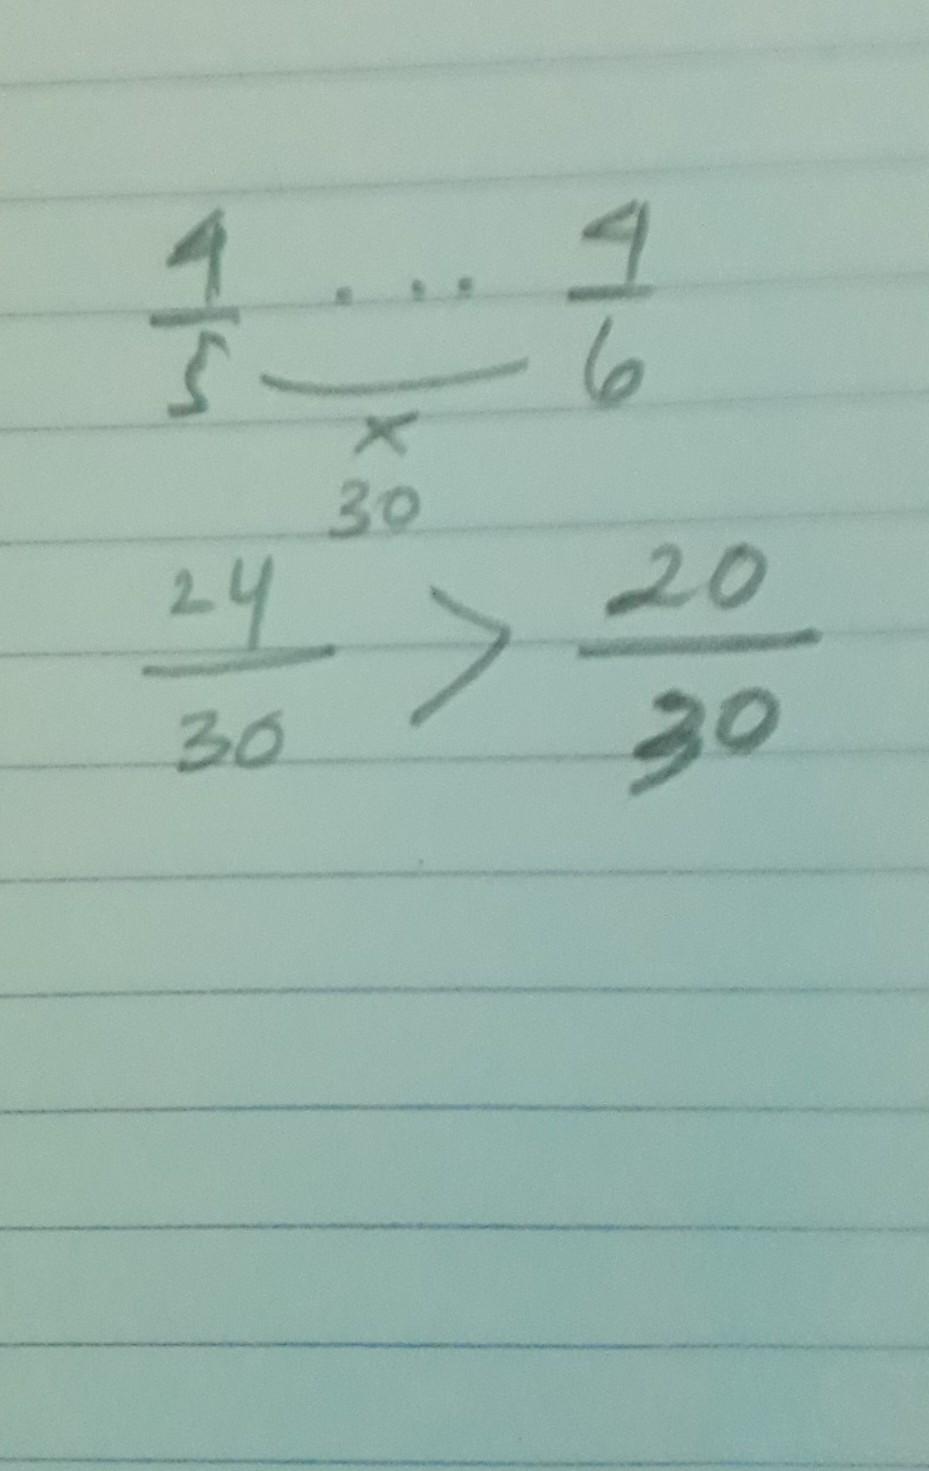 4/5 .... 4/6
×
30
24/30 > 20/30